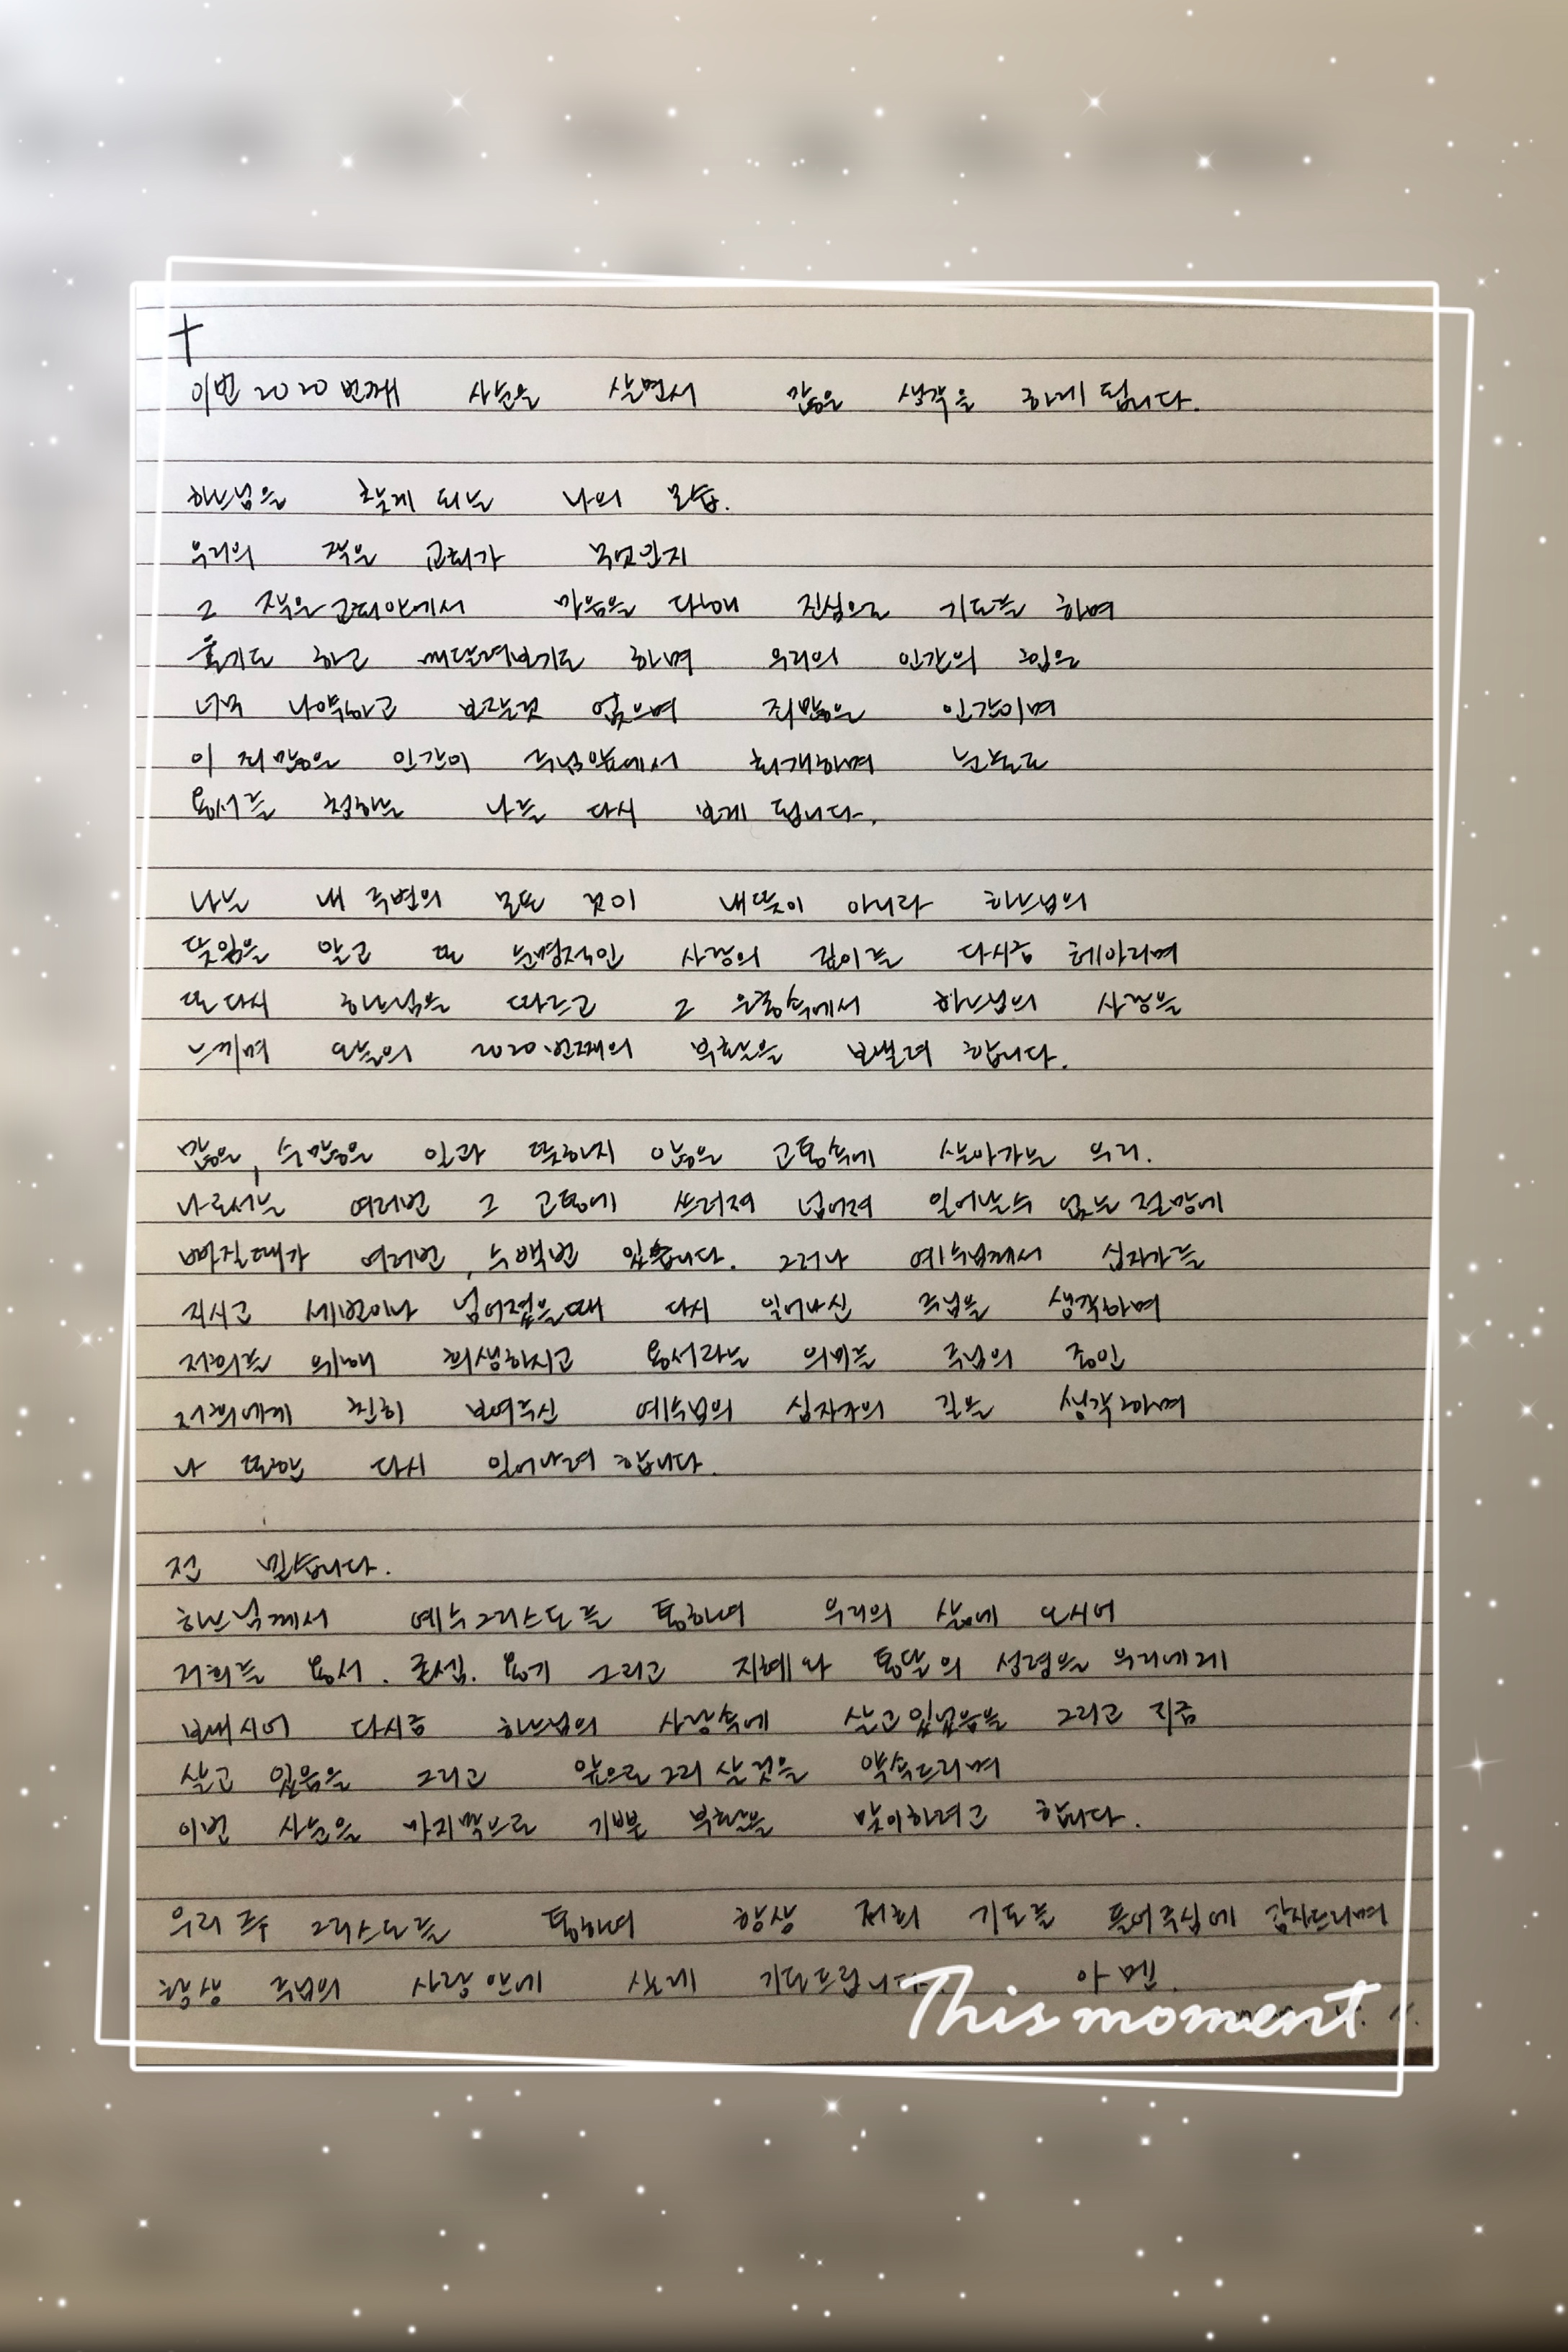 이번 2020번째 사순을 살면서 많은 생각을 하게 됩니다.
하느님을 찾게 되는 나의 모습.
우리의 작은 교회가 무엇인지
그 작은교회안에서 마음을 다해 진심으로 기도를 하며
울기도 하고 매달려보기도 하며 우리의 인간의 힘은
너무 나약하고 보잘것 없으며 죄많은 인간이며
이 죄많은 인간이 주님앞에서 회개하며 눈물로
용서를 청하는 나를 다시 보게 됩니다.
나는 내 주변의 모든 것이 내뜻이 아니라 하느님의
뜻임을 알고 또 순명적인 사랑의 깊이를 다시금 헤아리며
또다시 하느님을 따르고 그 은총속에서 하느님의 사랑을
느끼며 오늘의 2020번째의 부활을 보낼려 합니다.
많은, 수많은 이과 뜻하지 않은 고통속에 살아가는 우리.
나로서는 여러번 그 고통에 쓰러져 넘어져 일어날수 없는 절망에
빠질때가 여러번, 수백번 있습니다. 그러나 예수님께서 십자가를
지시고 세번이나 넘어졌을때 다시 일어나신 주님을 생각하며
저희를 위해 희생하시고 용서라는 의미를 주님의 종인
저희에게 친히 보여주신 예수님의 십자가의 길을 생각하며
나 또한 다시 일어나려 합니다.
전 믿습니다.
하느님께서 예수그리스도를 통하여 우리의 삶에 오시어
저희를 용서. 굳셈. 용기 그리고 지혜와 통달의 성령을 우리에게
보내시어 다시금 하느님의 사랑속에 살고있었음을 그리고 지금
살고 있음을 그리고 앞으로그리 살것을 약속드리며
이번 사순을 마지막으로 기쁜 부활을 맞이하려고 합니다.
우리 주 그리스도를 통하여 항상 저희 기도를 들어주심에 감사드리며
항상 주님의 사랑 안에 살게 기도드립니다. 아멘.
This moment